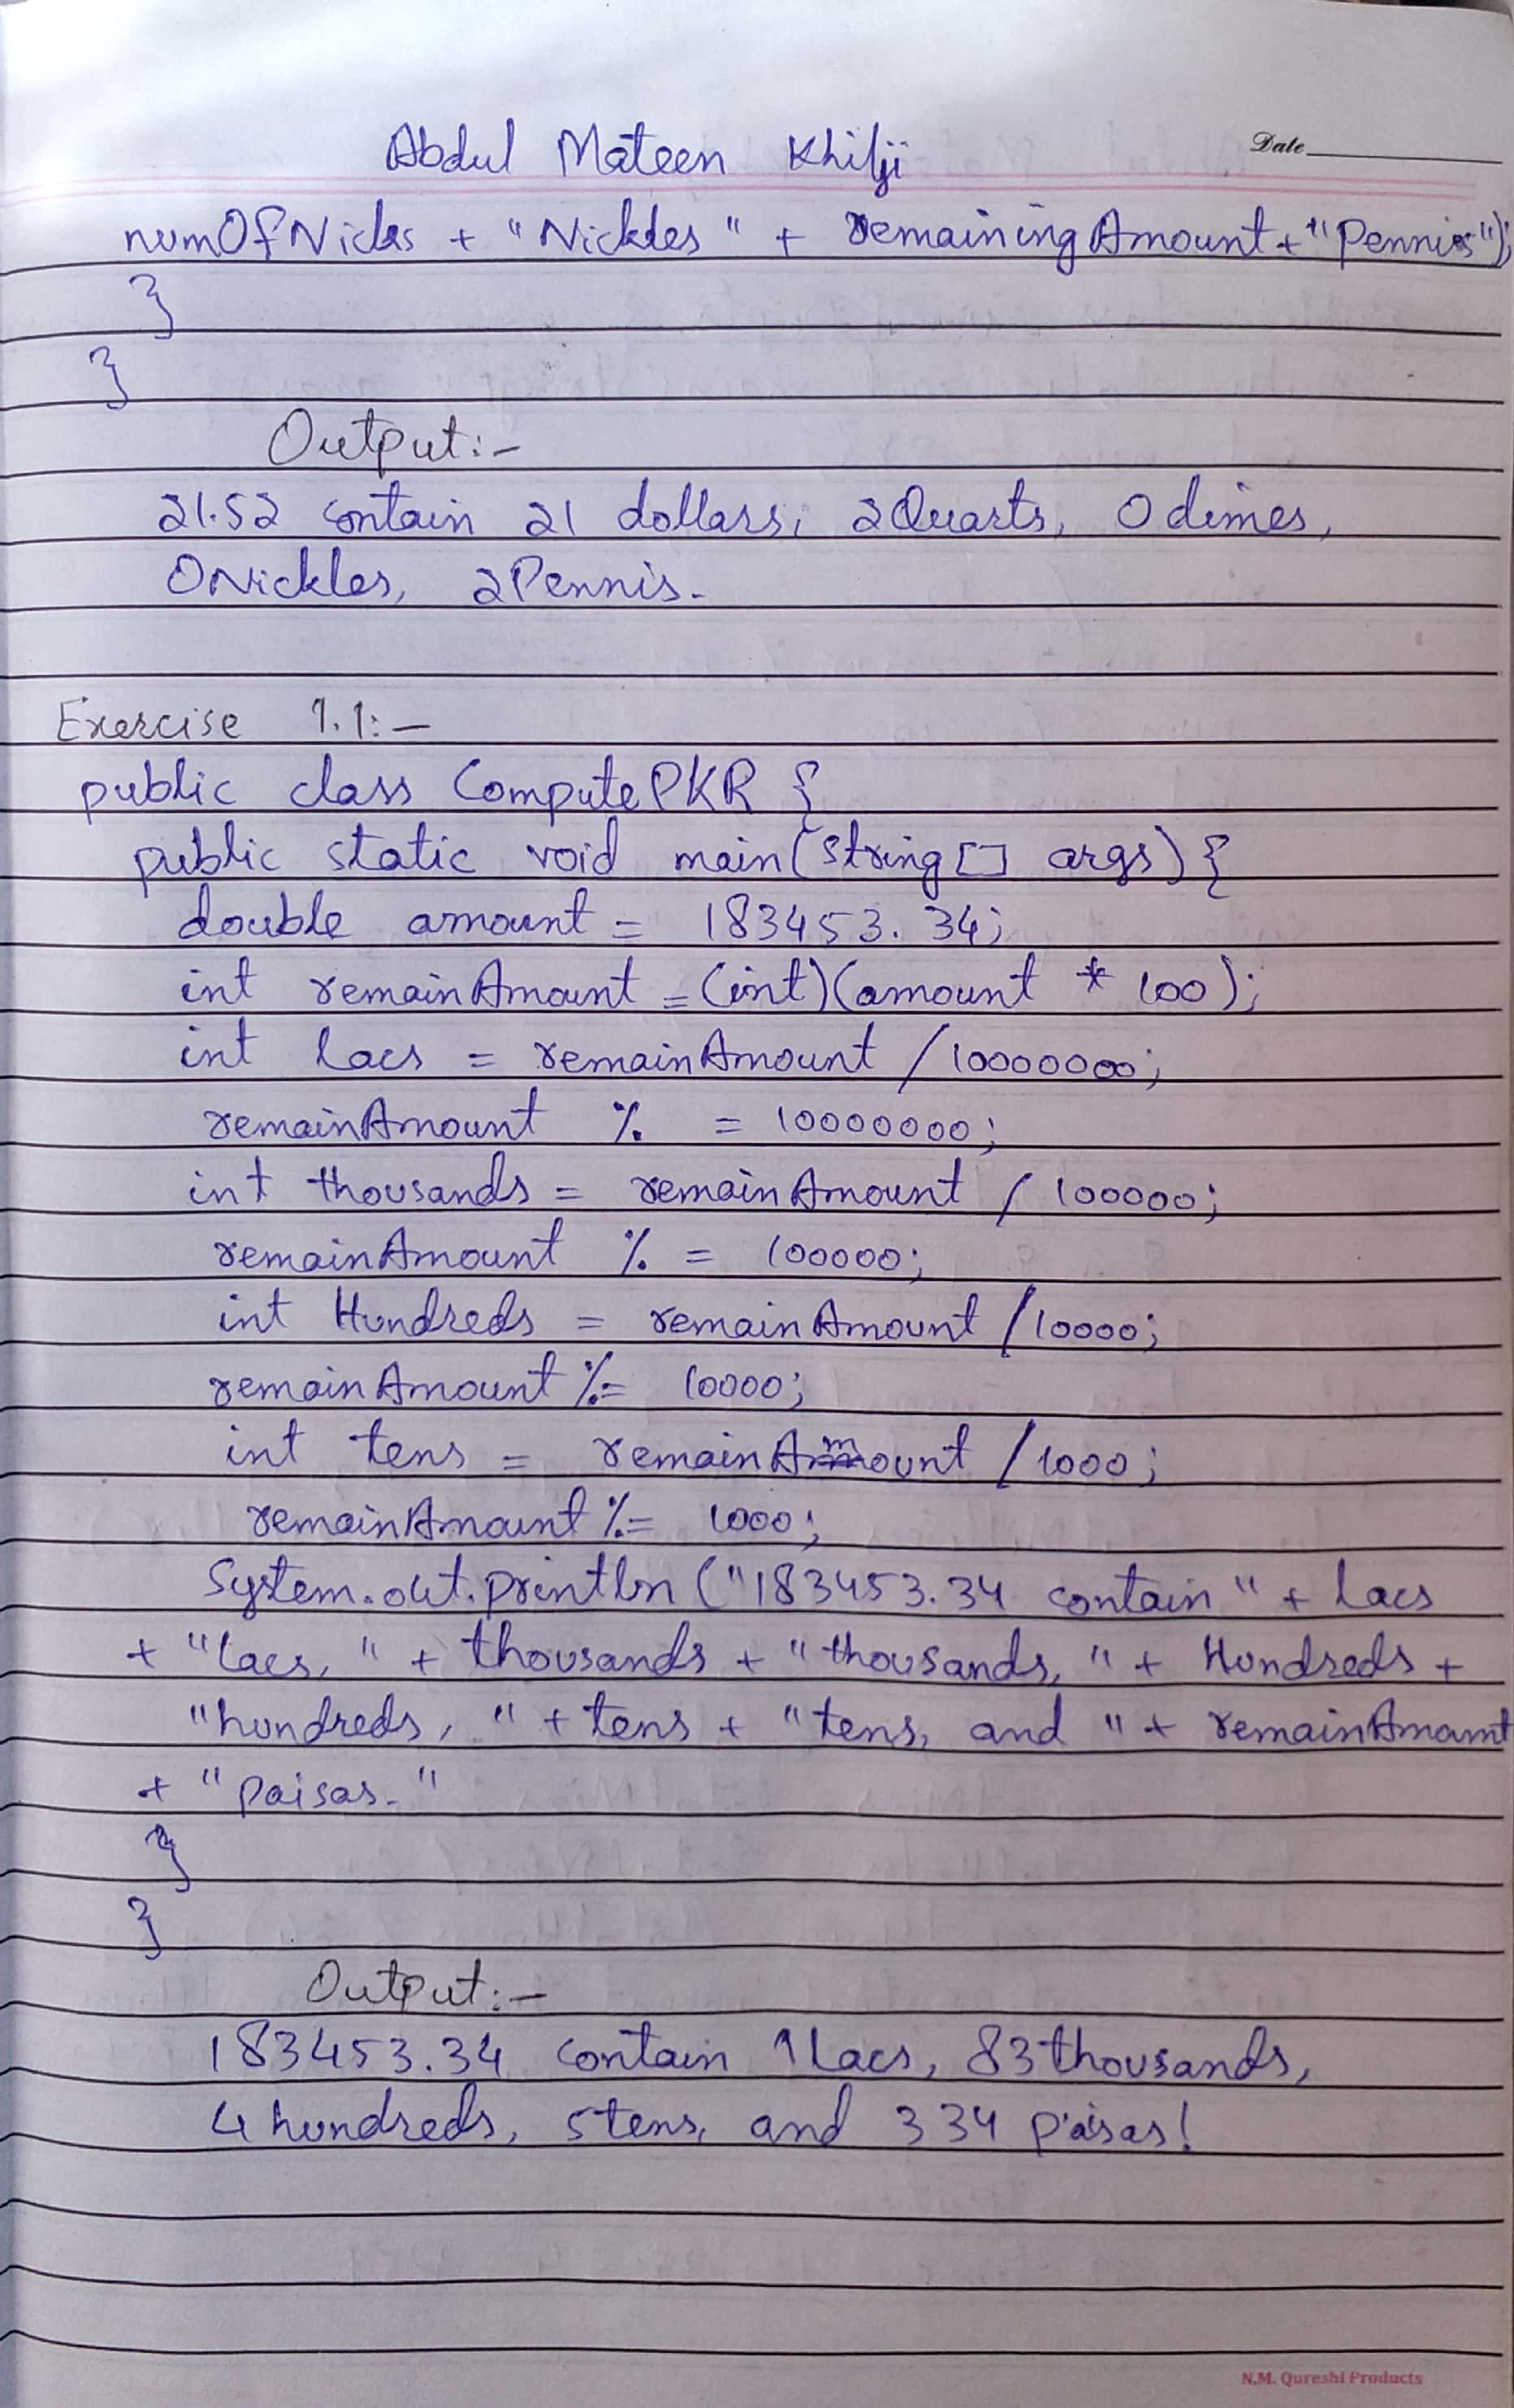 Abdul Mateen Khilji
Date
numOfNicks + "Nickles" + remainingAmount + "Pennies");
}
}
Output:-
21.52 contain 21 dollars, 2Quarts, 0 dimes,
0Nickles, 2Pennis.
Exercise 1.1:-
public class ComputePKR {
public static void main(string[] args){
double amount = 183453.34;
int remainAmount = (int)(amount * 100);
int lacs = remainAmount / 10000000;
remainAmount % = 10000000;
int thousands = remainAmount / 100000;
remainAmount % = 100000;
int Hundreds = remainAmount / 10000;
remainAmount %= 10000;
int tens = remainAmount / 1000;
remainAmount %= 1000;
System.out.println("183453.34 contain" + lacs
+ "lacs, " + thousands + "thousands, " + Hundreds +
"hundreds, " + tens + "tens, and " + remainAmount
+ "paisas."
}
}
Output:-
183453.34 contain 1lacs, 83thousands,
4hundreds, 5tens, and 334 paisas!
N.M. Qureshi Products